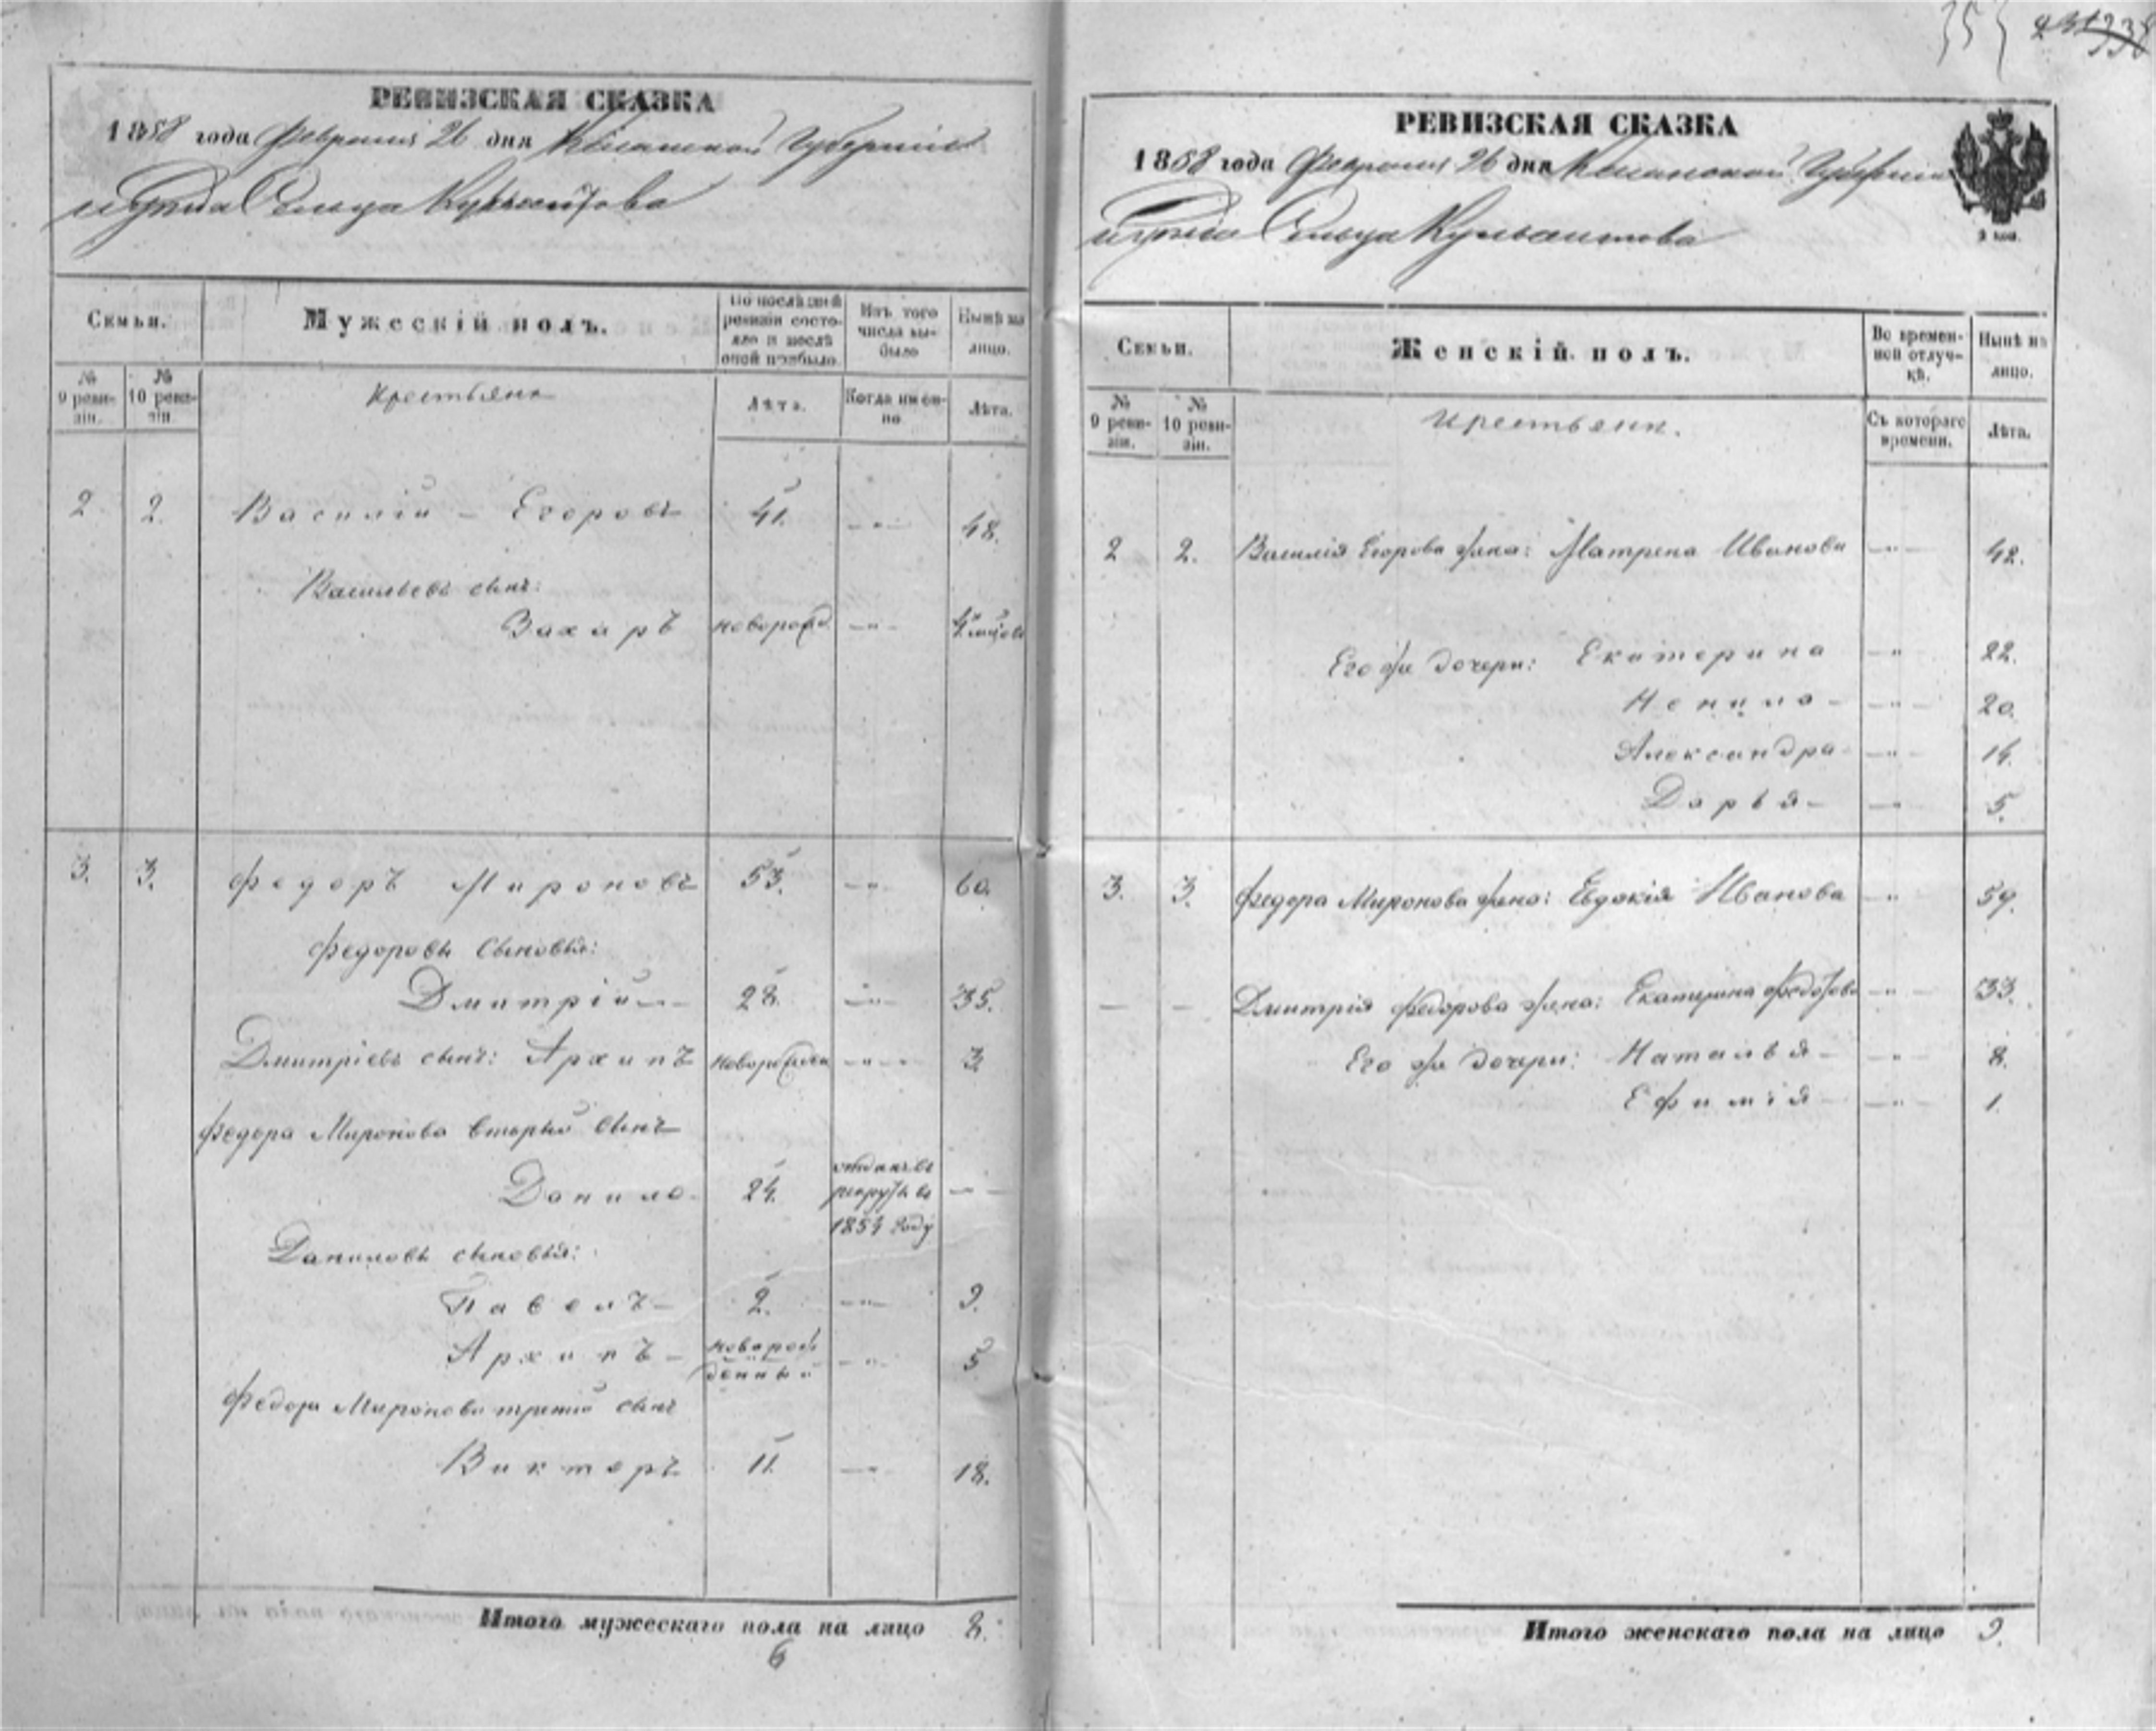 РЕВИЗСКАЯ СКАЗКА
1858 года Февраля 26 дня Казанской Губерніи
и уѣзда Сельца Кульсеитова
Семьи.
Мужескій полъ.
По послѣдней ревизіи состояло и послѣ оной прибыло.
Изъ того числа выбыло
Нынѣ на лицо.
№ 9 ревизіи.
№ 10 ревизіи.
Крестьяне
Лѣта.
Когда именно
Лѣта.
2 2. Василій – Егоровъ 41. —„— 48.
Васильевъ сынъ:
Захаръ новорожд. —„—
3. 3. Федоръ Мироновъ 53. —„ 60.
Федоровы сыновья:
Дмитрій — 28. —„— 35.
Дмитріевъ сынъ: Архипъ новорожден —„— 3
Федора Миронова вторый сынъ
Данило – 24. отданъ въ рекруты въ 1854 году — —
Даниловы сыновья:
Павелъ – 2. —„— 9.
Архипъ – новорожденный —„— 5
Федора Миронова третій сынъ
Викторъ 11. —„— 18.
Итого мужескаго пола на лицо 8.
6
РЕВИЗСКАЯ СКАЗКА
1858 года Февраля 26 дня Казанской Губерніи
и уѣзда Сельца Кульсеитова
Семьи.
Женскій полъ.
Во временной отлучкѣ.
Нынѣ на лицо.
№ 9 ревизіи.
№ 10 ревизіи.
Крестьяне.
Съ котораго времени.
Лѣта.
2 2. Василія Егорова жена: Матрена Иванова —„— 42.
Его же дочери: Екатерина —„ 22.
Ненила – —„— 20.
Александра – —„— 14.
Дарья – —„ 5.
3. 3. Федора Миронова жена: Евдокія Иванова —„— 59.
— — Дмитрія Федорова жена: Екатерина —„— 33.
Его же дочери: Наталья – —„— 8.
Ефимія – —„— 1.
Итого женскаго пола на лицо 9.